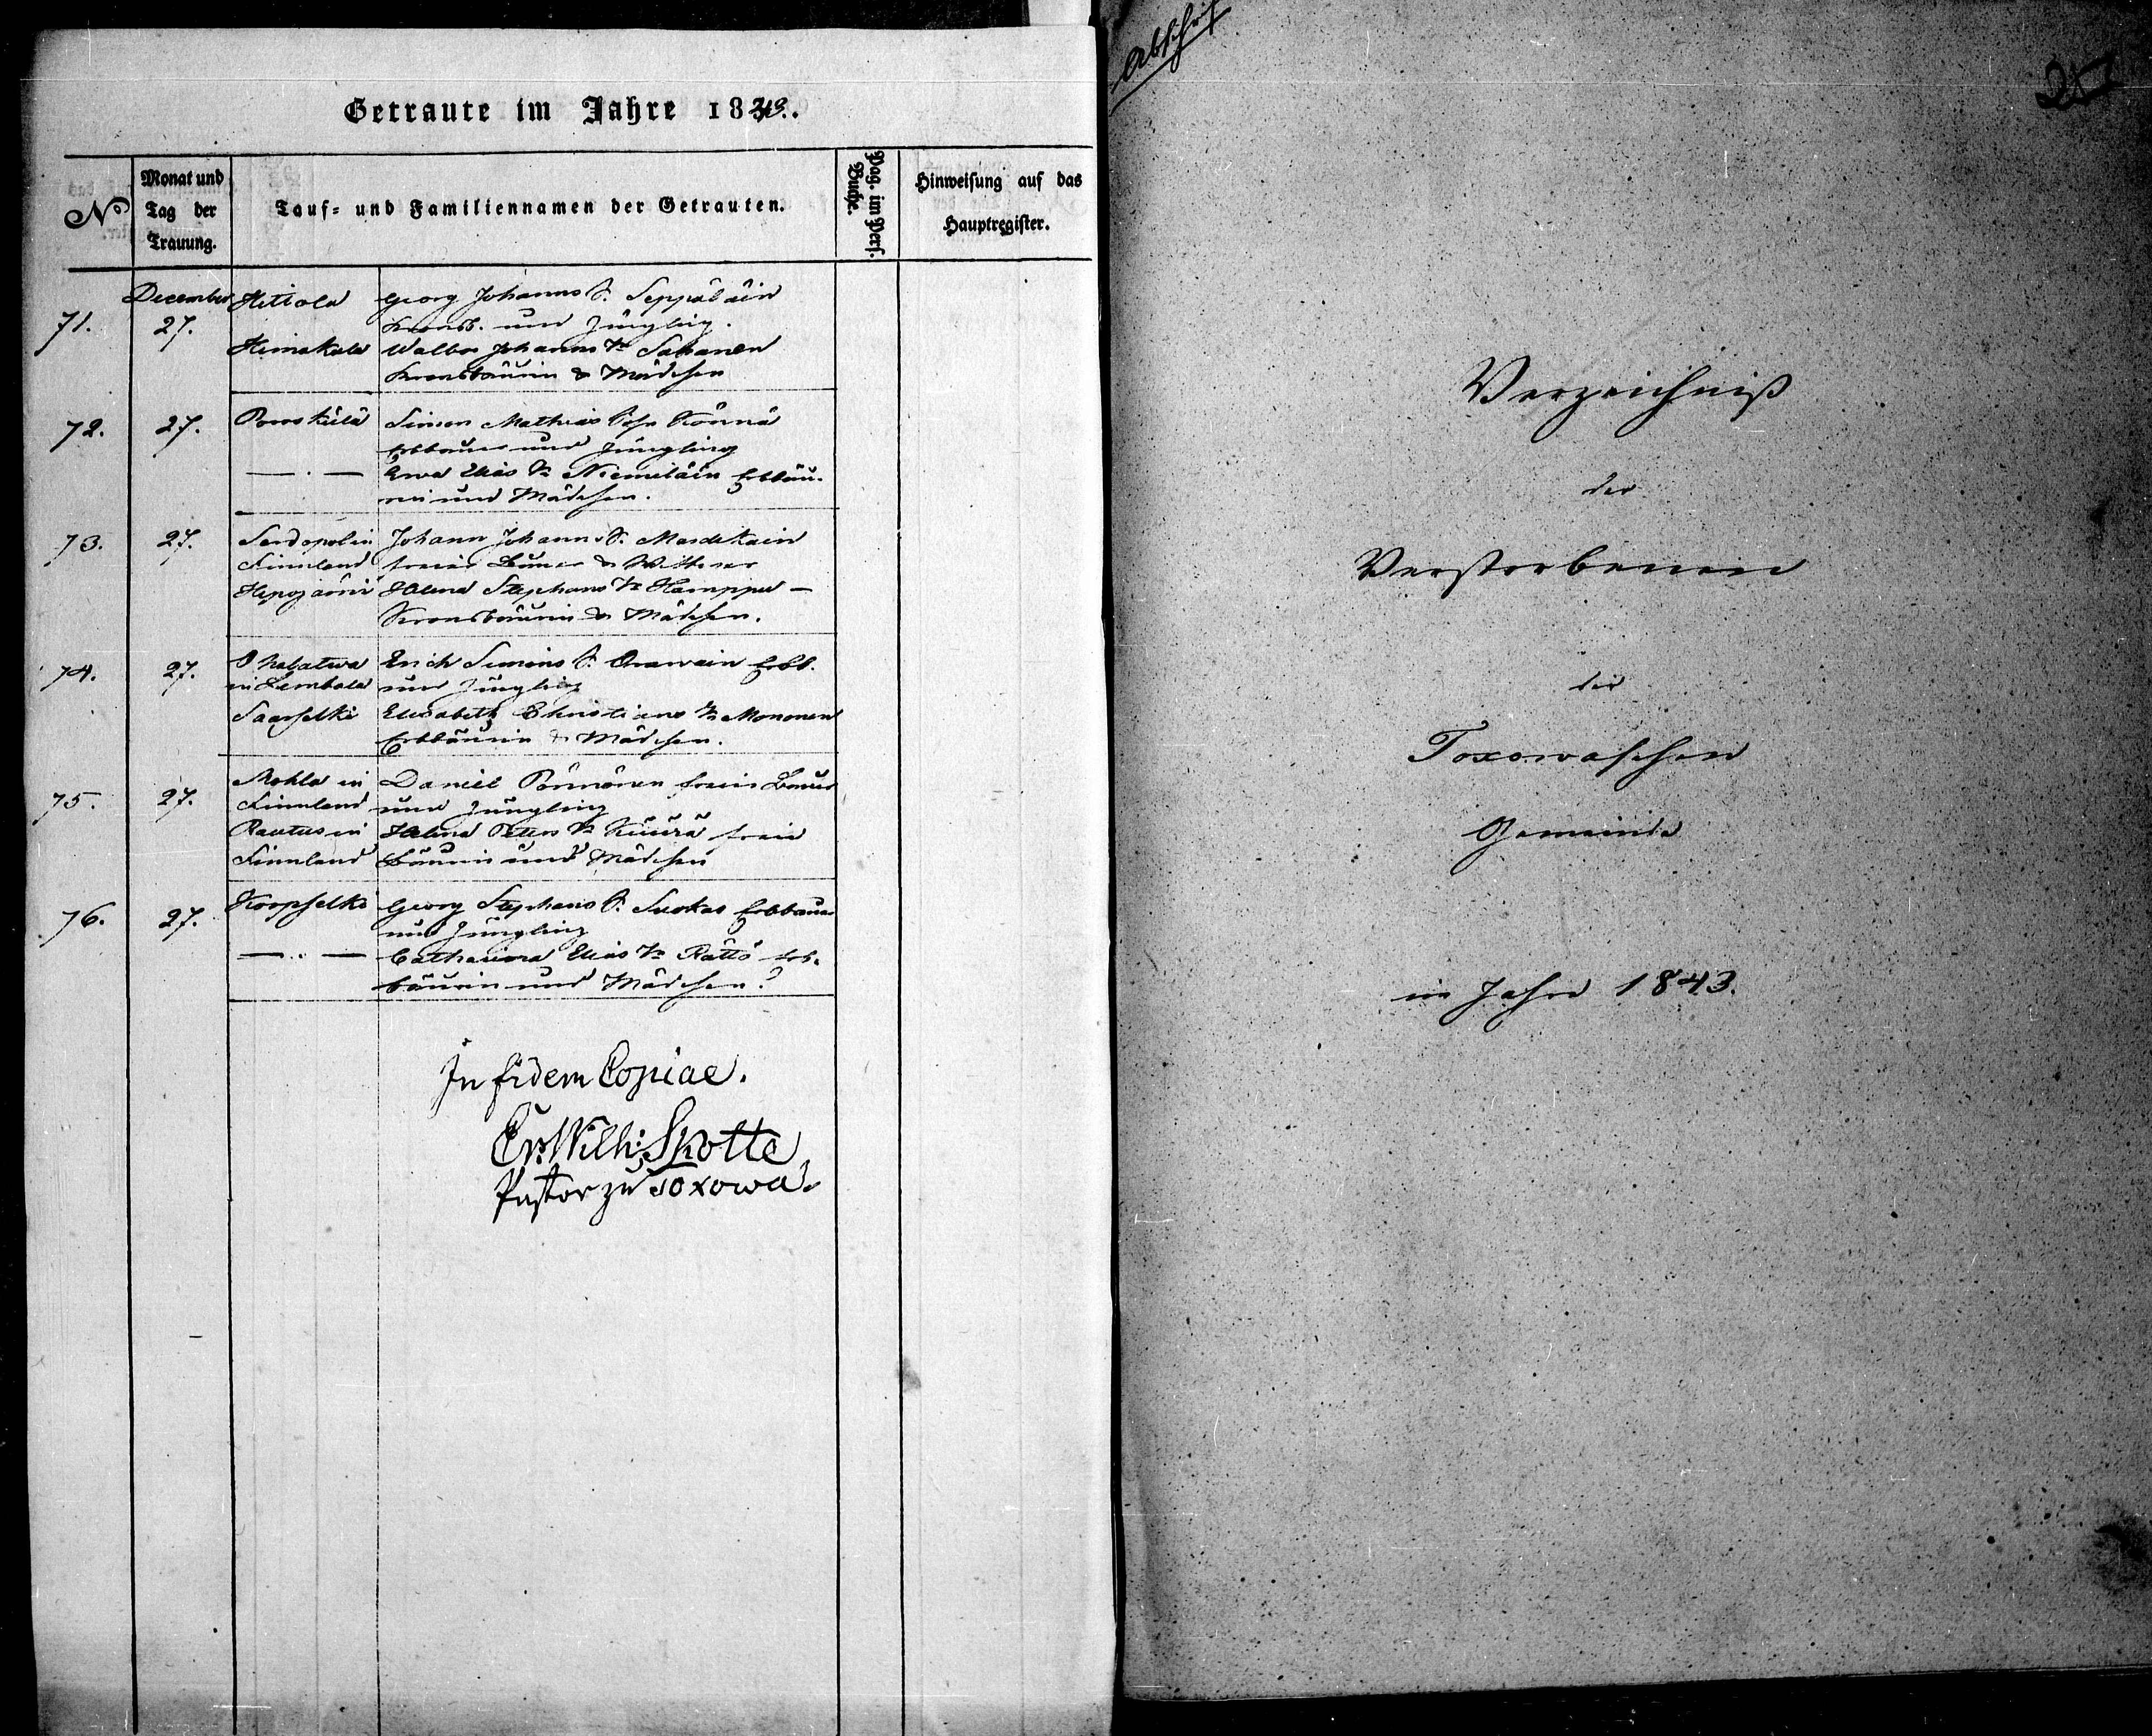 Getraute im Jahre 1843.
N
Monat und
Tag der
Trauung.
Tauf- und Familiennamen der Getrauten.
Pag. im Pers.
Buche.
Hinweisung auf das
Hauptregister.
December Hittola Georg Johanns S. Seppäläin
71. 27. Kronsb. und Jüngling.
Walbor Johanns Tr
Kronsbäurin & Mädchen
72. 27. Simon Mathias Sohn Könnä
Erbbauer und Jüngling
— . — Ewa Elias Tr Niemeläin Erbbäu-
rin und Mädchen.
73. 27. Johann Johanns S.
Finnland freier Bauer & Wittwer
Hepojärwi Helena Stephans Tr Hamppu —
Kronsbäurin & Mädchen.
74. 27. Erich Simons S. Erbb.
in Lembala und Jüngling
Saarselki Elisabeth Christians Tr Mononen
Erbbäurin & Mädchen.
75. 27. Mohla in Daniel Pönnönen freier Bauer
Finnland und Jüngling
Rautus in Helena Peters Tr freie
Finnland Bäurin und Mädchen
76. 27. Korpselki Georg Stephans S. Suokas Erbbauer
und Jüngling
— .. — Catharina Elias Tr Rättö Erb-
bäurin und Mädchen.
In fidem Copiae.
Er. Wilh: Skotte
Pastor zu Toxowa.
Abschrift
Verzeichniß
der
Verstorbenen
der
Toxowaschen
Gemeinde
im Jahre 1843.